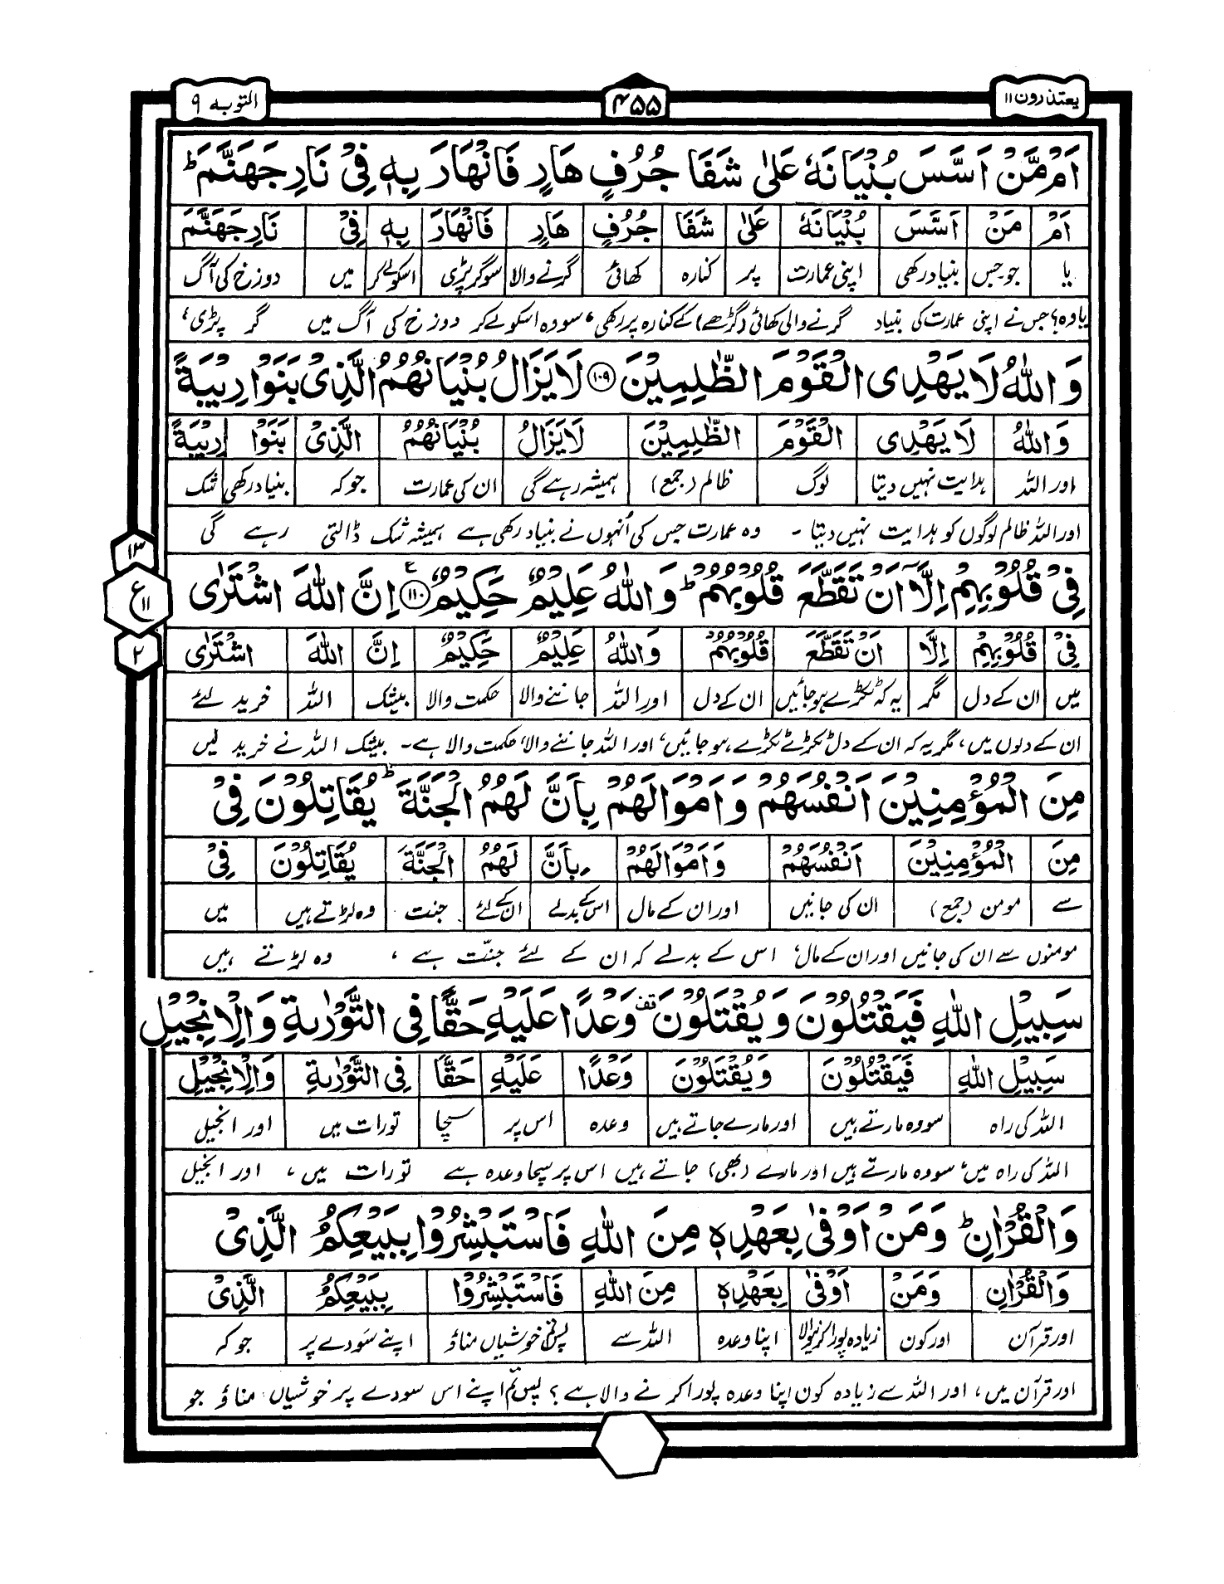 یعتذرون ۱۱
۴۵۵
التوبہ ۹
اَمْ مَّنْ اَسَّسَ بُنْیَانَهٗ عَلٰی شَفَا جُرُفٍ هَارٍ فَانْهَارَ بِهٖ فِیْ نَارِ جَهَنَّمَ ؕ
اَمْ مَنْ اَسَّسَ بُنْیَانَهٗ عَلٰی شَفَا جُرُفٍ هَارٍ فَانْهَارَ بِهٖ فِیْ نَارِ جَهَنَّمَ
یا جو جس بنیاد رکھی اپنی عمارت پر کنارہ کھائی گرنے والا سو گر پڑی اسکو لے کر میں دوزخ کی آگ
یا وہ؟ جس نے اپنی عمارت کی بنیاد گرنے والی کھائی (گڑھے) کے کنارہ پر رکھی، سو وہ اسکو لے کر دوزخ کی آگ میں گر پڑی،
وَاللّٰهُ لَا یَهْدِی الْقَوْمَ الظّٰلِمِیْنَ ۱۰۹ لَا یَزَالُ بُنْیَانُهُمُ الَّذِیْ بَنَوْا رِیْبَةً
وَاللّٰهُ لَا یَهْدِی الْقَوْمَ الظّٰلِمِیْنَ لَا یَزَالُ بُنْیَانُهُمُ الَّذِیْ بَنَوْا رِیْبَةً
اور اللہ ہدایت نہیں دیتا لوگ ظالم (جمع) ہمیشہ رہے گی ان کی عمارت جو کہ بنیاد رکھی شک
اور اللہ ظالم لوگوں کو ہدایت نہیں دیتا ۔ وہ عمارت جس کی اُنہوں نے بنیاد رکھی ہے ہمیشہ شک ڈالتی رہے گی
۱۳
ع ۱۱
۲
فِیْ قُلُوْبِهِمْ اِلَّاۤ اَنْ تَقَطَّعَ قُلُوْبُهُمْ ؕ وَاللّٰهُ عَلِیْمٌ حَكِیْمٌ ۱۱۰ اِنَّ اللّٰهَ اشْتَرٰی
فِیْ قُلُوْبِهِمْ اِلَّا اَنْ تَقَطَّعَ قُلُوْبُهُمْ وَاللّٰهُ عَلِیْمٌ حَكِیْمٌ اِنَّ اللّٰهَ اشْتَرٰی
میں ان کے دل مگر یہ کہ ٹکڑے ہو جائیں ان کے دل اور اللہ جاننے والا حکمت والا بیشک اللہ خرید لئے
ان کے دلوں میں، مگر یہ کہ ان کے دل ٹکڑے ٹکڑے ہو جائیں، اور اللہ جاننے والا، حکمت والا ہے۔ بیشک اللہ نے خرید لیں
مِنَ الْمُؤْمِنِیْنَ اَنْفُسَهُمْ وَاَمْوَالَهُمْ بِاَنَّ لَهُمُ الْجَنَّةَ ؕ یُقَاتِلُوْنَ فِیْ
مِنَ الْمُؤْمِنِیْنَ اَنْفُسَهُمْ وَاَمْوَالَهُمْ بِاَنَّ لَهُمُ الْجَنَّةَ یُقَاتِلُوْنَ فِیْ
سے مومن (جمع) ان کی جانیں اور ان کے مال اس کے بدلے ان کے لئے جنت وہ لڑتے ہیں میں
مومنوں سے ان کی جانیں اور ان کے مال، اس کے بدلے کہ ان کے لئے جنّت ہے ، وہ لڑتے ہیں
سَبِیْلِ اللّٰهِ فَیَقْتُلُوْنَ وَیُقْتَلُوْنَ قف وَعْدًا عَلَیْهِ حَقًّا فِی التَّوْرٰىةِ وَالْاِنْجِیْلِ
سَبِیْلِ اللّٰهِ فَیَقْتُلُوْنَ وَیُقْتَلُوْنَ وَعْدًا عَلَیْهِ حَقًّا فِی التَّوْرٰىةِ وَالْاِنْجِیْلِ
اللہ کی راہ سو وہ مارتے ہیں اور مارے جاتے ہیں وعدہ اس پر سچا تورات میں اور انجیل
اللہ کی راہ میں، سو وہ مارتے ہیں اور مارے (بھی) جاتے ہیں اس پر سچا وعدہ ہے تورات میں ، اور انجیل
وَالْقُرْاٰنِ ؕ وَمَنْ اَوْفٰی بِعَهْدِهٖ مِنَ اللّٰهِ فَاسْتَبْشِرُوْا بِبَیْعِكُمُ الَّذِیْ
وَالْقُرْاٰنِ وَمَنْ اَوْفٰی بِعَهْدِهٖ مِنَ اللّٰهِ فَاسْتَبْشِرُوْا بِبَیْعِكُمُ الَّذِیْ
اور قرآن اور کون زیادہ پورا کرنیوالا اپنا وعدہ اللہ سے پس تم خوشیاں مناؤ اپنے سودے پر جو کہ
اور قرآن میں، اور اللہ سے زیادہ کون اپنا وعدہ پورا کرنے والا ہے؟ پس تم اپنے اس سودے پر خوشیاں مناؤ جو